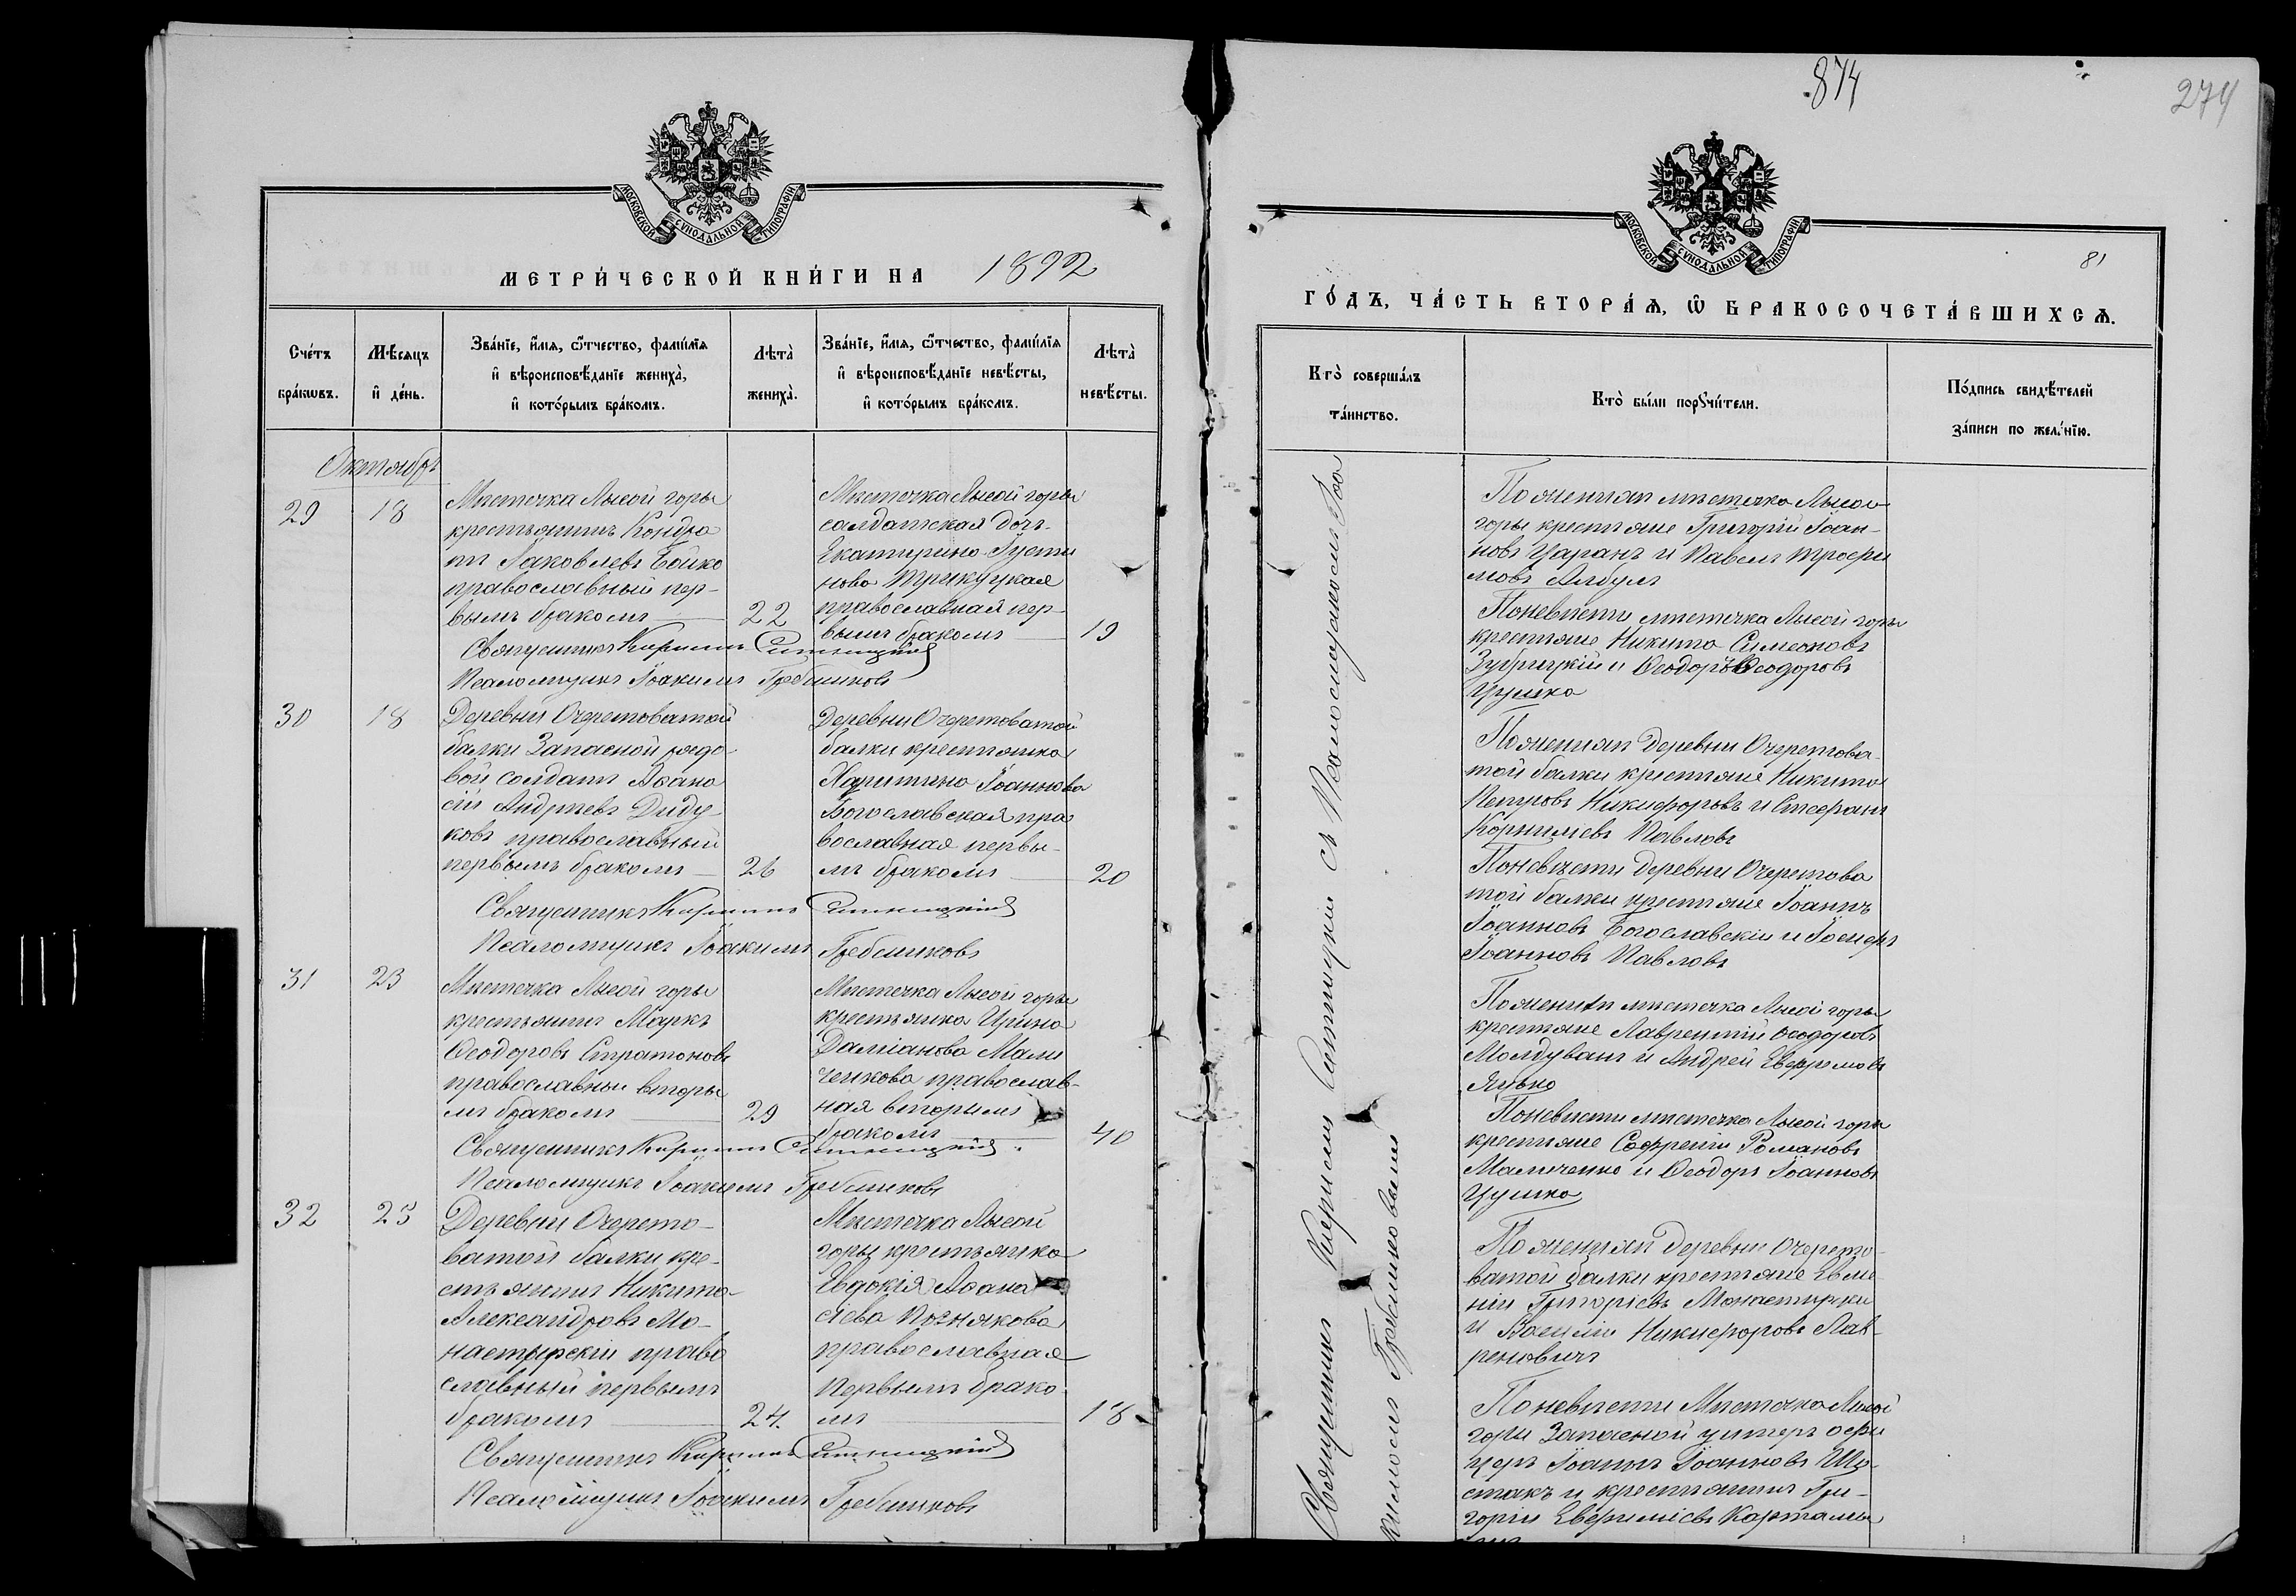 МОСКОВСКОЙ СѴНОДАЛЬНОЙ ТИПОГРАФІИ
МЕТРИ́ЧЕСКОЙ КНИ́ГИ НА 1892
Сче́тъ бра́кѡвъ.
Мѣ́сяцъ и҆ де́нь.
Зва́нїе, и҆́мѧ, ѻ҆́тчество, фамѝлїѧ
и҆ вѣроисповѣ́данїе жениха̀,
и҆ кото́рымъ бра́комъ.
Лѣта̀ жениха̀.
Зва́нїе, и҆́мѧ, ѻ҆́тчество, фамѝлїѧ
и҆ вѣроисповѣ́данїе невѣ́сты,
и҆ кото́рымъ бра́комъ.
Лѣта̀ невѣ́сты.
Октябрь
29
18
Мѣстечка Лысой горы
крестьянинъ Кондра
тъ Іаковлевъ Бойко
православный пер-
вымъ бракомъ
22
Мѣстечка Лысой горы
салдатская дочь
Екатирина Іусти
нова Трикуцкая
православная пер-
вымъ бракомъ
19
Священникъ Кириллъ Ситницкій
Псаломщикъ Іоакимъ Гребинниковъ
30
18
Деревни Очеретоватой
балки Запасной рядо
вой солдатъ Аѳана
сій Андреевъ Диду
ковъ православный
первымъ бракомъ
26
Деревни Очеретоватой
балки крестьянка
Харитина Іоаннова
Богославская пра
вославная первы-
мъ бракомъ
20
Священникъ Кириллъ Ситницкій
Псаломщикъ Іоакимъ Гребинниковъ
31
23
Мѣстечка Лысой горы
крестьянинъ Маркъ
Ѳеодоровъ Стратоновъ
православный вторы
мъ бракомъ
29
Мѣстечка Лысой горы
крестьянка Ирина
Даміанова Мали
ченкова православ-
ная вторымъ
бракомъ
40
Священникъ Кириллъ Ситницкій
Псаломщикъ Іоакимъ Гребинниковъ
32
25
Деревни Очерето-
ватой балки кре-
стьянинъ Никита
Александровъ Мо-
настырскій право
славный первымъ
бракомъ
24.
Мѣстечка Лысой
горы крестьянка
Евдокія Аѳана
сіева Позднякова
православная
первымъ брако
мъ
18
Священникъ Кириллъ Ситницкій
Псаломщикъ Іоакимъ Гребинниковъ
874
274
МОСКОВСКОЙ СѴНОДАЛЬНОЙ ТИПОГРАФІИ
81
ГО́ДЪ, ЧА́СТЬ ВТОРА́Ѧ, Ѡ҆ БРАКОСОЧЕТА́ВШИХСѦ.
Кто̀ соверша́лъ
та́инство.
Кто̀ бы́ли порꙋчи́тели.
По́дпись свидѣ́телей
за́писи по жела́нїю.
Священникъ Кириллъ Ситницкій съ Псаломщикомъ Іоа
кимомъ Гребинниковымъ
По женихѣ мѣстечка Лысой
горы крестьяне Григорій Іоан-
новъ Царанъ и Павелъ Трофи
мовъ Албулъ
По невѣсти мѣстечка Лысой горы
крестьяне Никита Симеоновъ
Зубрицкій и Ѳеодоръ Ѳеодоровъ
Цушко
По женихѣ деревни Очеретова-
той балки крестьяне Никита
Петровъ Никифоровъ и Стефанъ
Корниліевъ Павловъ
По невѣсти деревни Очеретова
той балки крестьяне Іоаннъ
Іоанновъ Богославскій и Іосифъ
Іоанновъ Павловъ
По женихѣ мѣстечка Лысой горы
крестьяне Лаврентій Ѳеодоровъ
Молдуванъ и Андрей Ефремовъ
Яцько
По невѣсти мѣстечка Лысой горы
крестьяне Софроній Романовъ
Маличенко и Ѳеодоръ Іоанновъ
Цушко
По женихѣ деревни Очерето
ватой балки крестьяне Евме
ній Григоріевъ Монастырскій
и Василій Никифоровъ Лав-
реновичъ
По невѣсти Мѣстечка Лысой
горы Запасной унтеръ офи
церъ Іоаннъ Іоанновъ Шо-
стакъ и крестьянинъ Гри-
горій Евфиміевъ Карталы